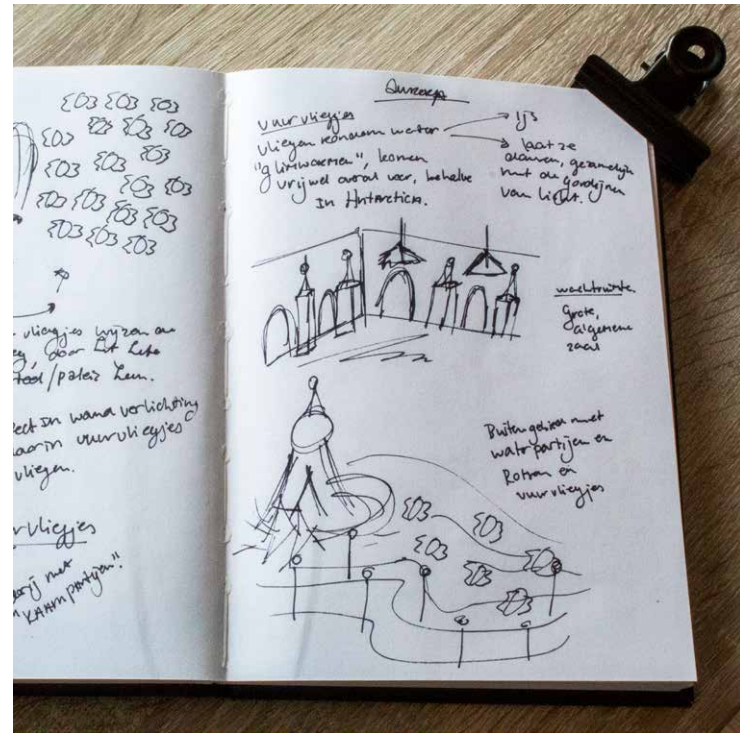 vliegjes wijzen de
weg, door het hele
/paleis heen.
in wand verlichting
waarin vuurvliegjes
vliegen.
vuurvliegjes
met
partijen".
vuurvliegjes
vliegen rondom water
"glimwormen", komen
vrijwel overal voor, behalve
In Antarctica.
IJs
laat ze
dansen, gezamelijk
met de gordijnen
van licht.
wachtruimte.
Grote,
algemene
zaal
Buitengebied met
waterpartijen en
Rotsen en
vuurvliegjes